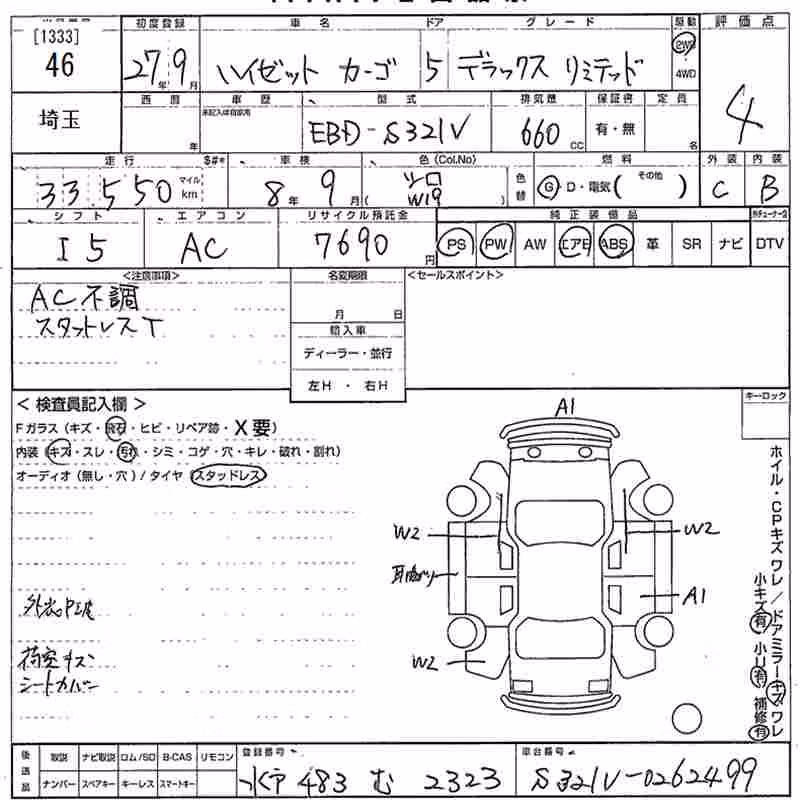 [1333]
46
埼玉
初度登録
27年9月
車名
ドア
グレード
駆動
評価点
ハイゼット カーゴ
5
デラックス リミテッド
2WD
4WD
4
西暦
年
車歴
未記入は自家用
型式
EBD-S321V
排気量
660 CC
保証書
有・無
定員
名
走行
33,550
マイル
km
$#*
車検
8年9月
色(Col.No)
シロ
( W19 )
色替
燃料
G・D・電気( その他 )
外装
C
内装
B
シフト
I5
エアコン
AC
リサイクル預託金
7690円
純正装備品
PS PW AW エアB ABS 革 SR ナビ DTV
<注意事項>
AC不調
スタットレスT
名変期限
月 日
輸入車
ディーラー・並行
左H・右H
<セールスポイント>
<検査員記入欄>
Fガラス(キズ・飛石・ヒビ・リペア跡・X要)
内装(キズ・スレ・汚れ・シミ・コゲ・穴・キレ・破れ・割れ)
オーディオ(無し・穴)/タイヤ(スタッドレス)
荷室キズ
シートカバー
A1
W2
W2
A1
W2
キーロック
ホイル・CPキズ ワレ/ドアミラーキズ ワレ
小キズ有 小U有 補修有
後送品
取説 ナビ取説 ロム/SD B-CAS リモコン
ナンバー スペアキー キーレス スマートキー
登録番号
水戸 483 む 2323
車台番号
S321V-0262499